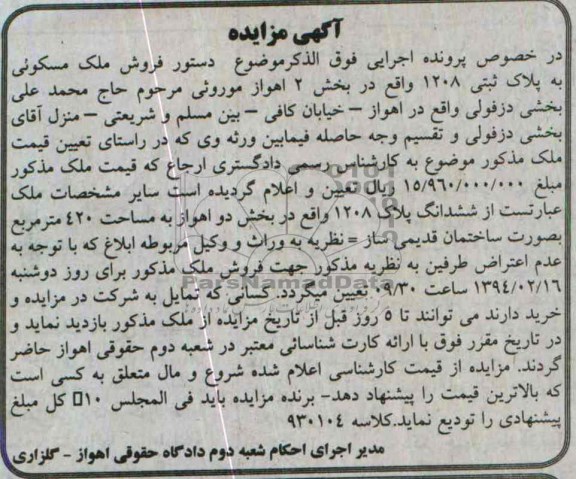 آگهی مزایده
در خصوص پرونده اجرایی فوق الذکرموضوع دستور فروش ملک مسکونی
به پلاک ثبتی ۱۲۰۸ واقع در بخش ۲ اهواز موروثی مرحوم حاج محمد علی
بخشی دزفولی واقع در اهواز – خیابان کافی – بین مسلم و شریعتی – منزل آقای
بخشی دزفولی و تقسیم وجه حاصله فیمابین ورثه وی که در راستای تعیین قیمت
ملک مذکور موضوع به کارشناس رسمی دادگستری ارجاع که قیمت ملک مذکور
مبلغ ۱۵/۹۶۰/۰۰۰/۰۰۰ ریال تعیین و اعلام گردیده است سایر مشخصات ملک
عبارتست از ششدانگ پلاک ۱۲۰۸ واقع در بخش دو اهواز به مساحت ۴۲۰ مترمربع
بصورت ساختمان قدیمی ساز = نظریه به وراث و وکیل مربوطه ابلاغ که با توجه به
عدم اعتراض طرفین به نظریه مذکور جهت فروش ملک مذکور برای روز دوشنبه
۱۳۹۴/۰۲/۱۶ ساعت ۰۹/۳۰ تعیین میگردد. کسانی که تمایل به شرکت در مزایده و
خرید دارند می توانند تا ۵ روز قبل از تاریخ مزایده از ملک مذکور بازدید نماید و
در تاریخ مقرر فوق با ارائه کارت شناسائی معتبر در شعبه دوم حقوقی اهواز حاضر
گردند. مزایده از قیمت کارشناسی اعلام شده شروع و مال متعلق به کسی است
که بالاترین قیمت را پیشنهاد دهد- برنده مزایده باید فی المجلس ۱۰□ کل مبلغ
پیشنهادی را تودیع نماید.کلاسه ۹۳۰۱۰۴
مدیر اجرای احکام شعبه دوم دادگاه حقوقی اهواز - گلزاری
ParsNamadData